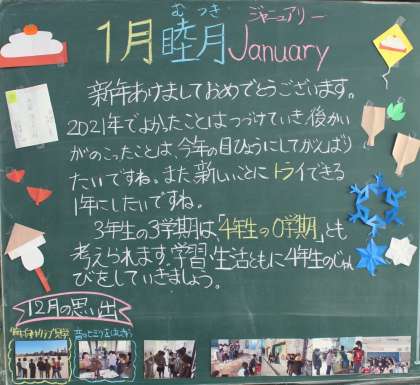 むつき ジャニュアリー
1月睦月January
新年あけましておめでとうございます。
2021年でよかったことはつづけていき、後かい
がのこったことは、今年の目ひょうにしてがんばり
たいですね。また新しいことにトライできる
1年にしたいですね。
3年生の3学期は、「4年生の0学期」とも
考えられます。学習、生活ともに4年生のじゅん
びをしていきましょう。
12月の思い出